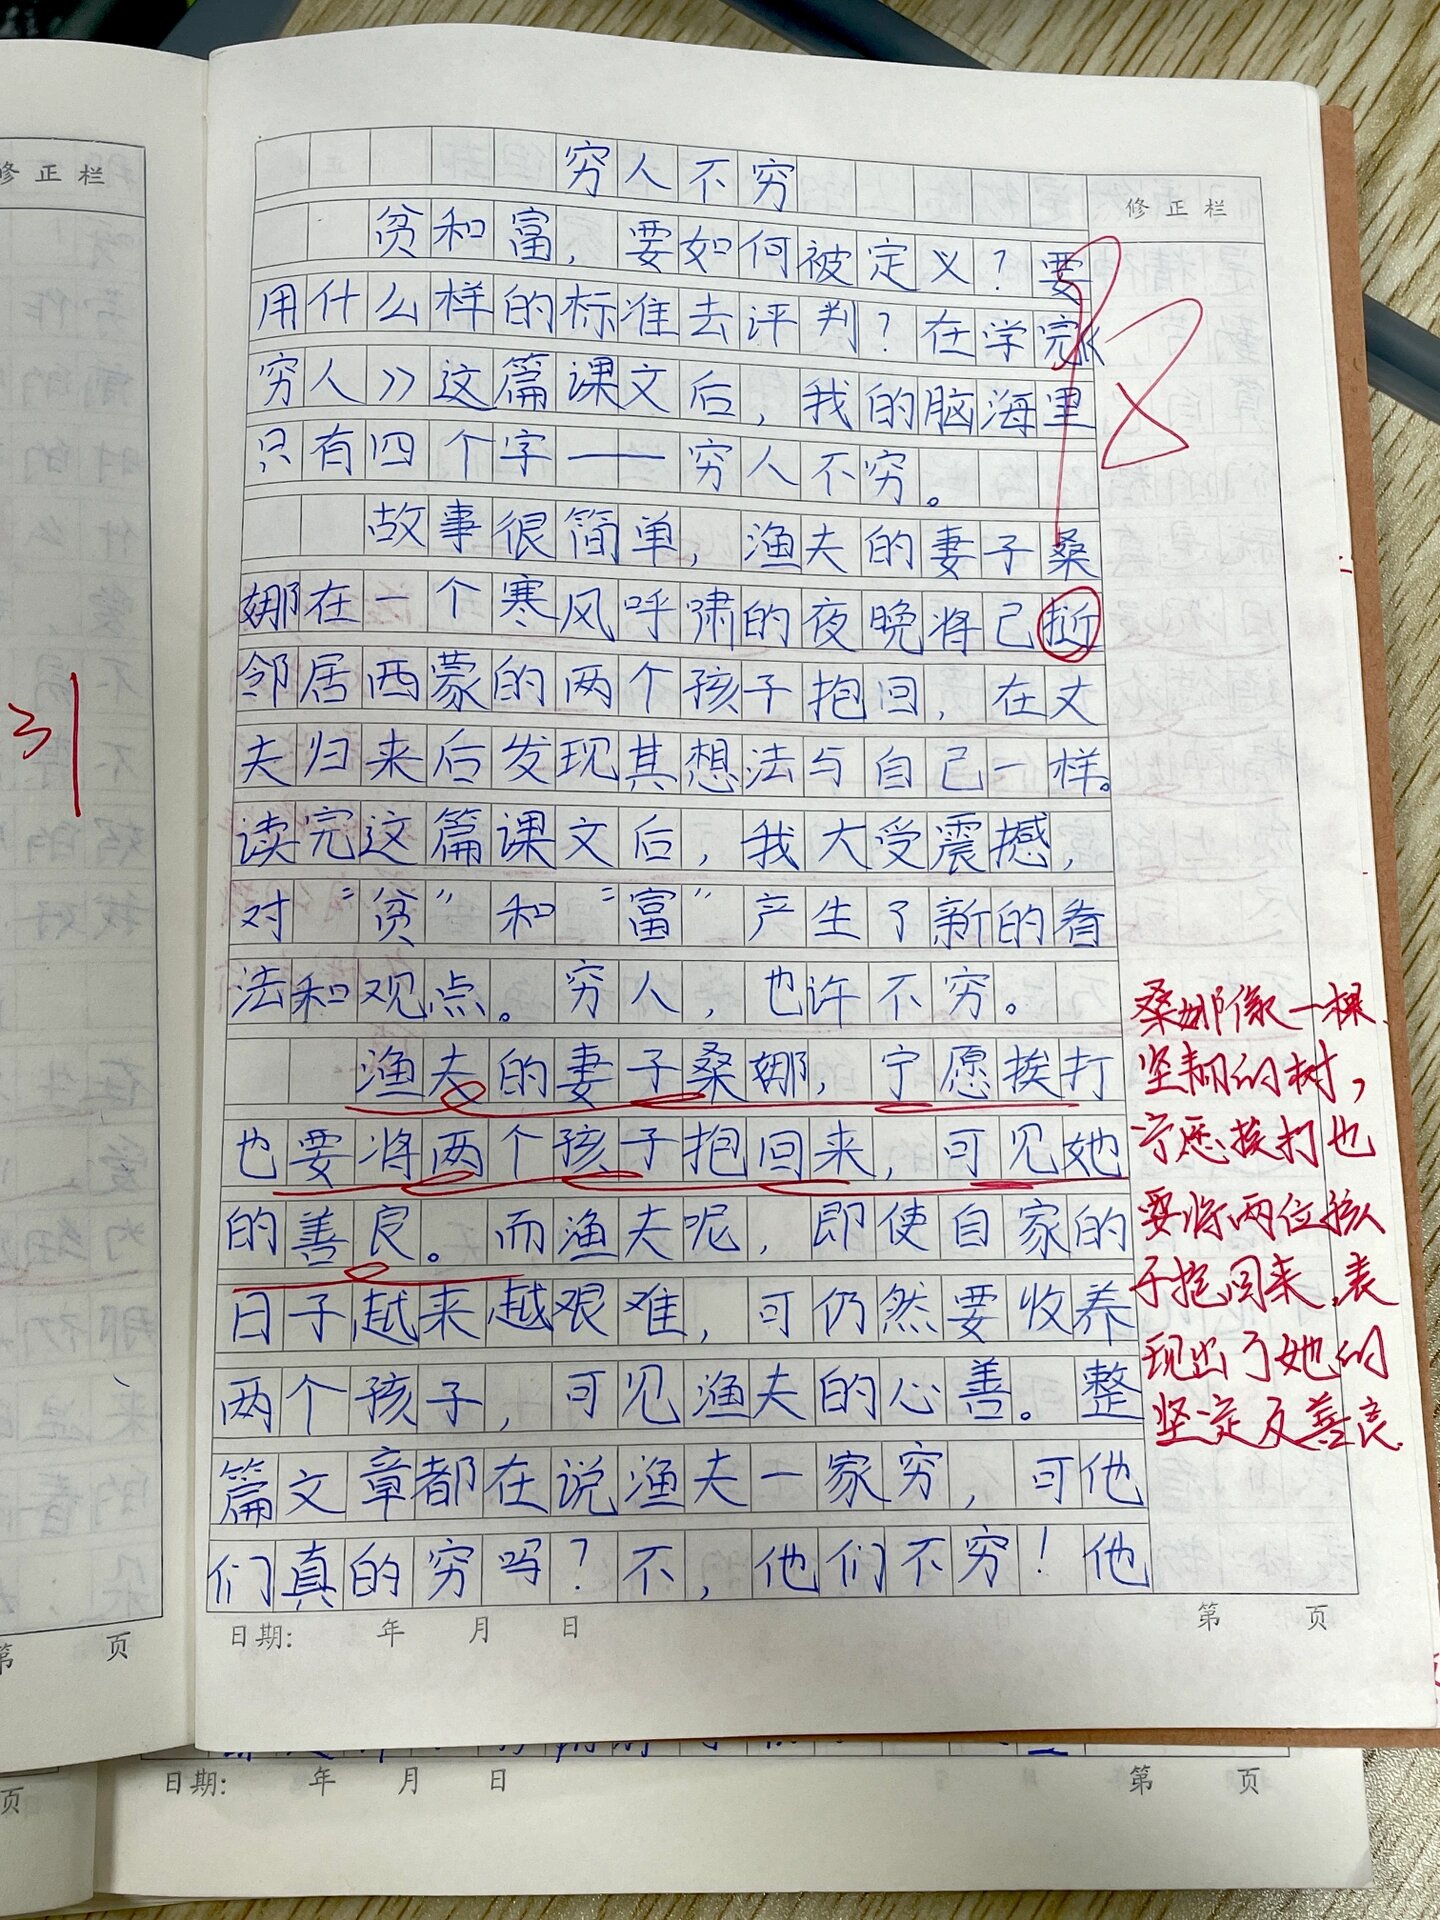 修正栏
穷人不穷
修正栏
贫和富，要如何被定义？要
用什么样的标准去评判？在学完《
穷人》这篇课文后，我的脑海里
只有四个字——穷人不穷。
故事很简单，渔夫的妻子桑
娜在一个寒风呼啸的夜晚将己
邻居西蒙的两个孩子抱回，在丈
夫归来后发现其想法与自己一样。
读完这篇课文后，我大受震撼，
对“贫”和“富”产生了新的看
法和观点。穷人，也许不穷。
渔夫的妻子桑娜，宁愿挨打
也要将两个孩子抱回来，可见她
的善良。而渔夫呢，即使自家的
日子越来越艰难，可仍然要收养
两个孩子，可见渔夫的心善。整
篇文章都在说渔夫一家穷，可他
们真的穷吗？不，他们不穷！他
桑娜像一棵
坚韧的树，
宁愿挨打也
要将两位孩
子抱回来，表
现出了她的
坚定及善良.
31
日期: 年 月 日
第 页
第 页
日期: 年 月 日
第 页
页